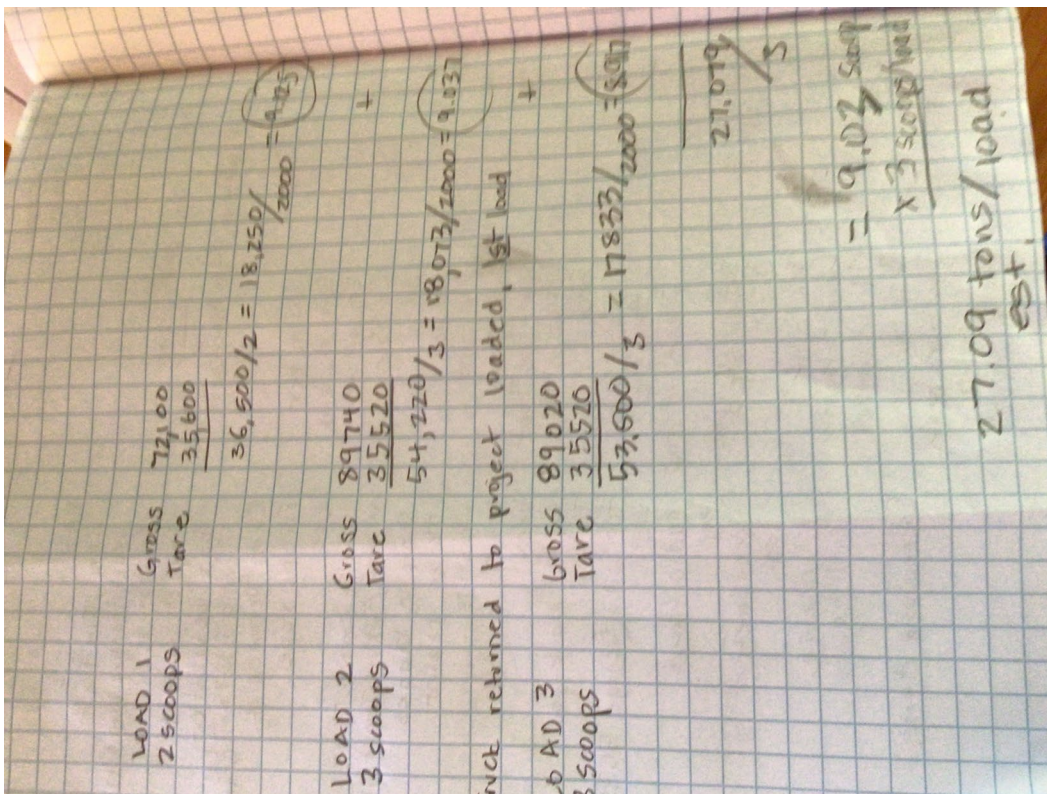 LOAD 1 Gross 72,100
2 scoops Tare 35,600
36,500/2 = 18,250/2000 = 9.125
+
LOAD 2 Gross 89740
3 scoops Tare 35520
54,220/3 = 18,073/2000 = 9.037
ruck returned to project loaded, 1st load
+
OAD 3 Gross 89020
3 scoops Tare 35520
53,500/3 = 17833/2000 = 8.917
27.079
/3
= 9.03 scoop
x 3 scoops/load
27.09 tons/load
est.